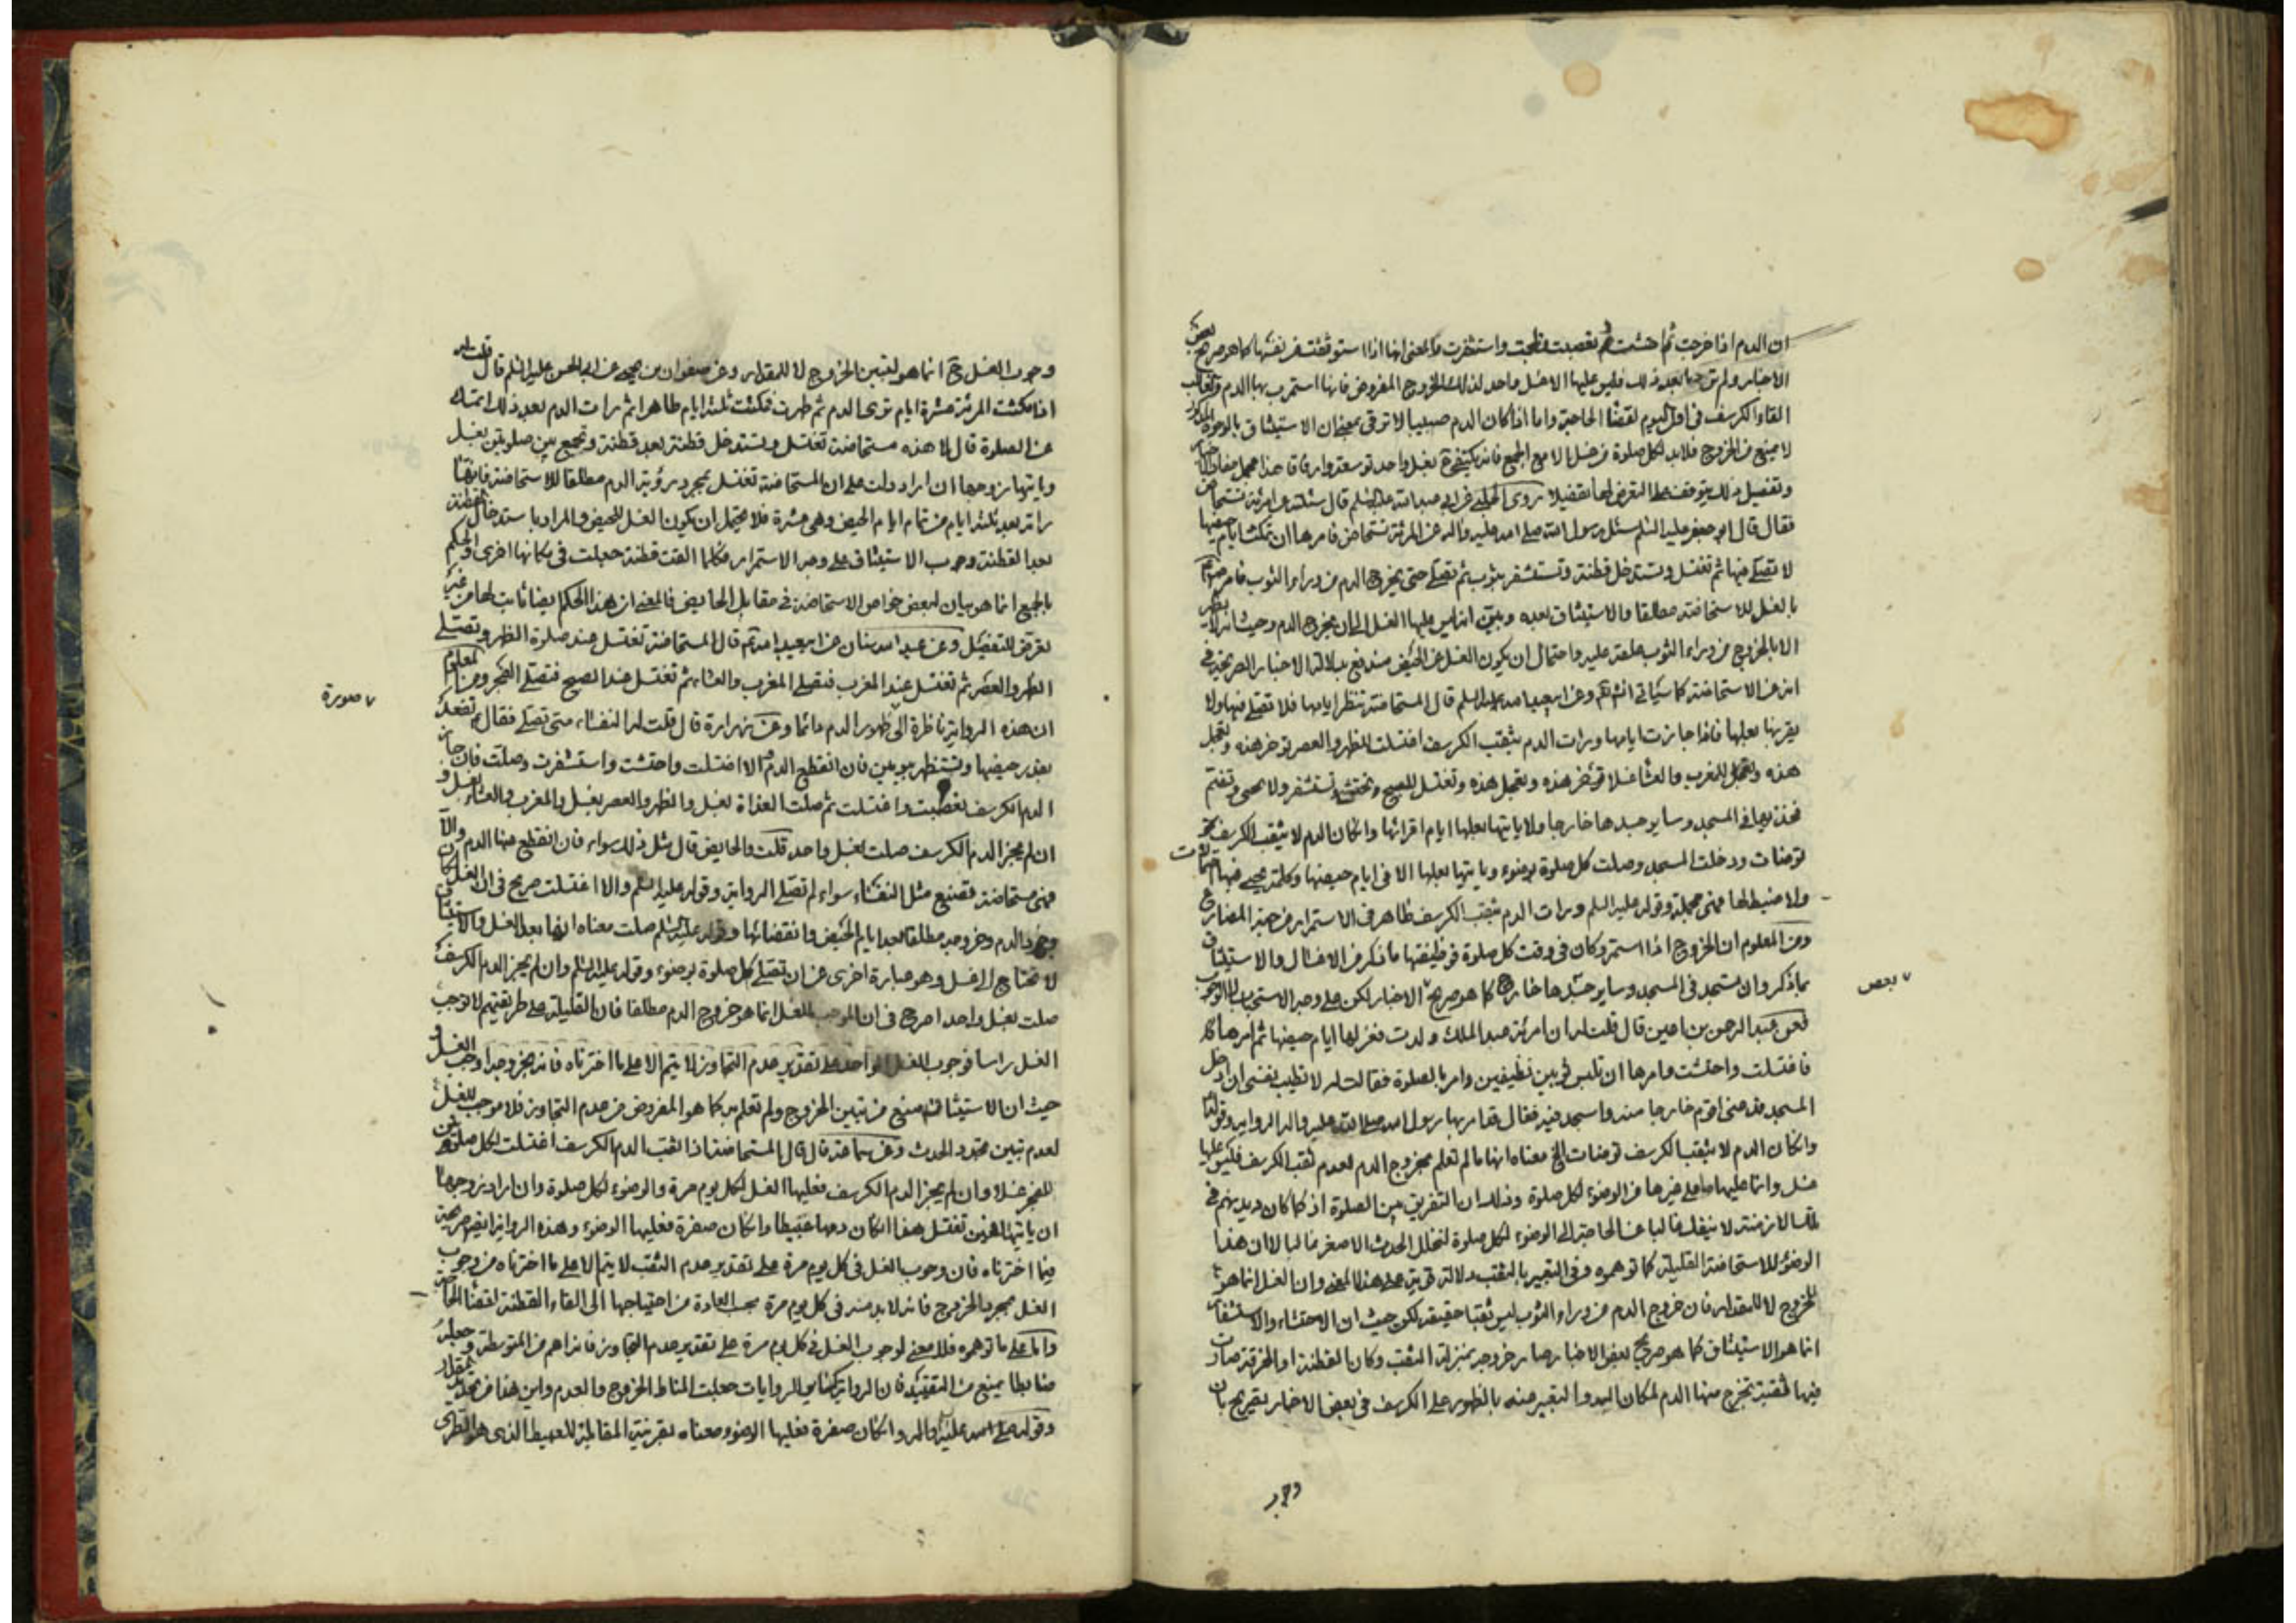 ان الدم اذا خرجت ثم احتشت تعصبت واستثفرت والمعنى انها اذا استوثقت من نفسها كما هو صريح بعض
الاخبار ولم بعد ذلك فليس عليها الا غسل واحد لذلك الخروج المفروض فانها استمر بها الدم
القاء الكرسف في اول اليوم لقضاء الحاجة واما اذا كان الدم صبيبا لا ترقى بمعنى ان الاستيثاق بالوجه المذكور
لا يمنع من الخروج فلا بد لكل صلوة من غسل الا مع الجمع فانه يكتفى ح بغسل واحد توسعة وارفاقا هذا مجمل مفاد الاخبار
وتفصيل ذلك يتوقف على التعرض لها تفصيلا روى الحلبي عن ابي عبد الله عليه السلم قال سئلته عن امرئة تستحاض
فقال قال ابو جعفر عليه السلم سئل رسول الله صلى الله عليه واله عن المرئة تستحاض فامرها ان تمكث ايام حيضها
لا تصلى فيها ثم تغتسل وتستدخل قطنة وتستثفر بثوب ثم تصلى حتى يخرج الدم من وراء الثوب فامر
بالغسل للاستحاضة مطلقا والاستيثاق بعده وبين انه ليس عليها الغسل الى ان يخرج الدم وحيث انه لا يظهر
الا بالخروج من وراء الثوب علقه عليه واحتمال ان يكون الغسل عن الحيض مندفع بدلالة الاخبار الصريحة في
انه عن الاستحاضة كما سيأتي انشائكم وعن ابيعبد الله عليه السلم قال المستحاضة تنتظر ايامها فلا تصلى فيها ولا
يقربها بعلها فاذا جازت ايامها ورات الدم يثقب الكرسف اغتسلت للظهر والعصر توخر هذه وتعجل
هذه وللمغرب والعشا غسلا تؤخر هذه وتعجل هذه وتغتسل للصبح وتحتشى وتستثفر ولا تحيى وتضم
فخذيها في المسجد وساير جسدها خارجا ولا ياتيها بعلها ايام اقرائها وان كان الدم لا يثقب الكرسف
توضات ودخلت المسجد وصلت كل صلوة بوضوء وياتيها بعلها الا في ايام حيضها وكلمة يحيى فيها
ولا ضبط لها فهى مجملة وقوله عليه السلم ورات الدم يثقب الكرسف ظاهر في الاستمرار من جهة المضارع
ومن المعلوم ان الخروج اذا استمر وكان في وقت كل صلوة فوظيفتها ما ذكر من الاغسال والاستيثاق
بما ذكر وان تستجد في المسجد وساير جسدها خارج كما هو صريح الاخبار لكن على وجه الاستحباب لا الوجوب
بعض
فعن عبد الرحمن بن اعين قال قلت له ان امرئة عبد الملك ولدت فعد لها ايام حيضها ثم امرها
فاغتسلت واحتشت وامرها ان تلبس ثوبين نظيفين وامر بالصلوة فقالت له لا تطيب نفسى ان ادخل
المسجد فدعنى اقوم خارجا منه واسجد فيه فقال قد امر بها رسول الله صلى الله عليه واله الرواية وقوله
وان كان الدم لا يثقب الكرسف توضات الخ معناه انها ما لم تعلم بخروج الدم لعدم ثقب الكرسف فليس عليها
غسل وانما عليها ما على غيرها من الوضوء لكل صلوة وذلك ان التفريق بين الصلوة اذ كما كان ديدنهم في
تلك الازمنة لا ينفك غالبا عن الحاجة الى الوضوء لكل صلوة لتخلل الحدث الاصغر غالبا لا ان هذا
الوضوء للاستحاضة القليلة كما توهموه وفي التعبير بالثقب دلالة قوية على هذا المعنى وان الغسل انما هو
للخروج لا للمقدار فان خروج الدم من وراء الثوب ليس ثقبا حقيقة لكن حيث ان الاحتشاء والاستثفار
انما هو الاستيثاق كما هو صريح بعض الاخبار صار خروجه بمنزلة الثقب وكان القطنة او الخرقة صارت
فيها ثقبة تخرج منها الدم لمكان السد والتعبير عنه بالظهور على الكرسف في بعض الاخبار تصريح بان
وجوب
وجوب الغسل ح انما هو لتبين الخروج لا للمقدار وعن صفوان بن يحيى عن ابي الحسن عليه السلم قال قلت له
اذا مكثت المرئة عشرة ايام ترى الدم ثم طهرت فمكثت ثلثة ايام طاهرا ثم رات الدم بعد ذلك اتمسك
عن الصلوة قال لا هذه مستحاضة تغتسل وتستدخل قطنة بعد قطنة وتجمع بين صلوتين بغسل
وياتيها زوجها ان اراد دلت على ان المستحاضة تغتسل بمجرد رؤية الدم مطلقا للاستحاضة فانها
راته بعد ثلثة ايام من تمام ايام الحيض وهى عشرة فلا يحتمل ان يكون الغسل للحيض والمراد باستدخال القطنة
بعد القطنة وجوب الاستيثاق على وجه الاستمرار فكلما القت قطنة جعلت في مكانها اخرى والحكم
بالجمع انما هو بيان لبعض خواص الاستحاضة في مقابل الحايض فالمعنى ان هذا الحكم ايضا ثابت لها من غير
تعرض للتفصيل وعن عبد الله سنان عن ابيعبد الله قال المستحاضة تغتسل عند صلوة الظهر وتصلى
الظهر والعصر ثم تغتسل عند المغرب فتصلى المغرب والعشاء ثم تغتسل عند الصبح فتصلى الفجر ومن المعلوم
صورة
ان هذه الرواية ناظرة الى ظهور الدم دائما وعن زرارة قال قلت له النفساء متى تصلى فقال تقعد
بقدر حيضها وتستظهر بيومين فان انقطع الدم والا اغتسلت واحتشت واستثفرت وصلت فان جاز
الدم الكرسف تعصبت واغتسلت ثم صلت الغداة بغسل والظهر والعصر بغسل والمغرب والعشاء بغسل و
ان لم يجز الدم الكرسف صلت بغسل واحد قلت والحايض قال مثل ذلك سواء فان انقطع عنها الدم والا
فهى مستحاضة تصنع مثل النفساء سواء ثم تصلى الرواية وقوله عليه السلم والا اغتسلت صريح في ان الغسل
الدم وخروجه مطلقا بعد ايام الحيض وانقضائها وقوله عليه السلم صلت معناه انها بعد الغسل والاستيثاق
لا تحتاج الى غسل وهو عبارة اخرى عن ان تصلى كل صلوة بوضوء وقوله عليه السلم وان لم يجز الدم الكرسف
صلت بغسل واحد اصرح في ان الموجب للغسل انما هو خروج الدم مطلقا فان القليلة على طريقتهم لا توجب
الغسل راسا فوجوب الغسل الواحد على تقدير عدم التجاوز لا يتم الا على ما اخترناه فانه بخروجه وجب الغسل و
حيث ان الاستيثاق منع من تبين الخروج ولم تعلم به كما هو المفروض من عدم التجاوز فلا موجب للغسل
لعدم تبين تجدد الحدث وعن سماعة قال قال المستحاضة اذا ثقب الدم الكرسف اغتسلت لكل صلوتين
للفجر غسلا وان لم يجز الدم الكرسف فعليها الغسل لكل يوم مرة والوضوء لكل صلوة وان اراد زوجها
ان ياتيها فحين تغتسل هذا ان كان دمها عبيطا وان كان صفرة فعليها الوضوء وهذه الرواية ايضا صريحة
فيما اخترناه فان وجوب الغسل في كل يوم مرة على تقدير عدم الثقب لا يتم الا على ما اخترناه من وجوب
الغسل بمجرد الخروج فانه لا بد منه في كل يوم مرة بحسب العادة من احتياجها الى القاء القطنة لقضاء الحاجة
واما على ما توهموه فلا معنى لوجوب الغسل في كل يوم مرة على تقدير عدم التجاوز فانه اعم من المتوسطة وجعله
ضابطا يمنع من التقييد فان الرواية كساير الروايات جعلت المناط الخروج والعدم واين هذا من تحديد بمقدار
وقوله صلى الله عليه واله وان كان صفرة فعليها الوضوء معناه بقرينة المقابلة للعبيط الذى هو الطرى